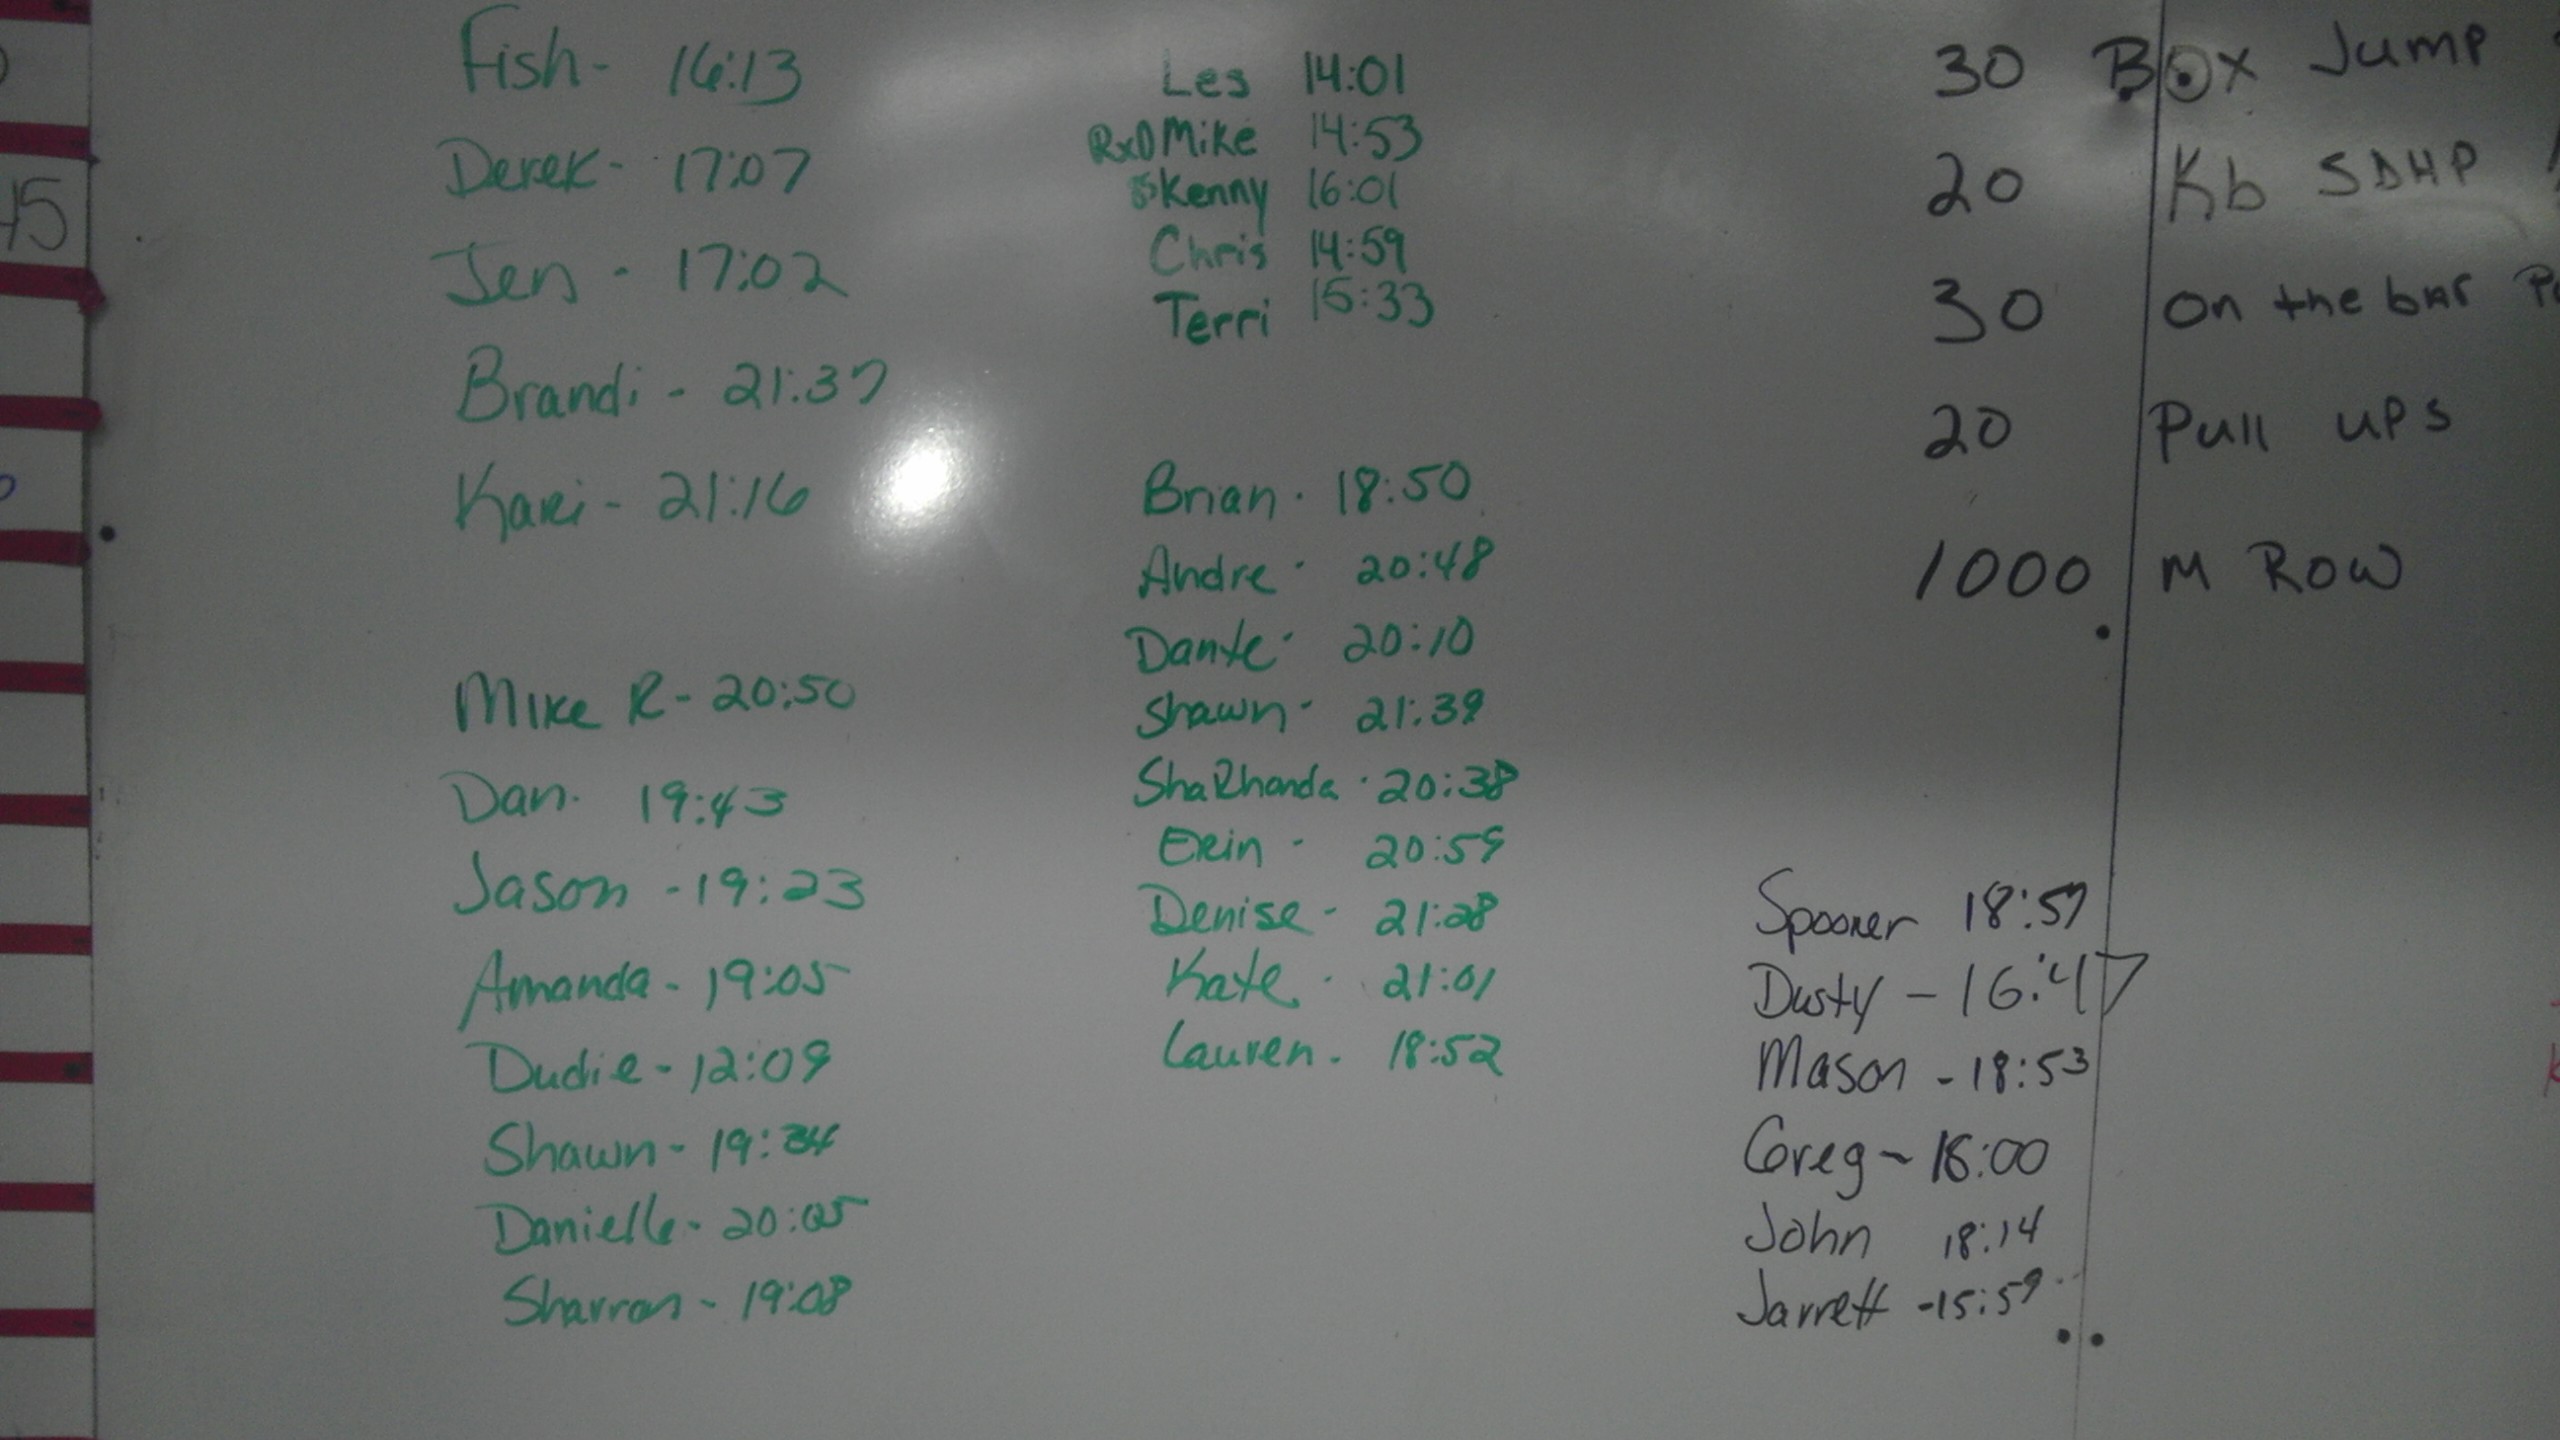 45
Fish- 16:13
Derek- 17:07
Jen - 17:02
Brandi - 21:37
Kari - 21:16
Mike R - 20:50
Dan. 19:43
Jason - 19:23
Amanda - 19:05
Dudie - 12:09
Shawn - 19:34
Danielle - 20:05
Sharron - 19:08
Les 14:01
RxD Mike 14:53
Kenny 16:01
Chris 14:59
Terri 15:33
Brian - 18:50
Andre - 20:48
Dante - 20:10
Shawn - 21:39
ShaRhonda - 20:38
Erin - 20:59
Denise - 21:28
Kate - 21:01
Lauren - 18:52
30 Box Jump
20 Kb SDHP
30 on the bar
20 Pull ups
1000 M Row
Spooner 18:57
Dusty - 16:47
Mason - 18:53
Greg - 18:00
John 18:14
Jarrett - 15:59